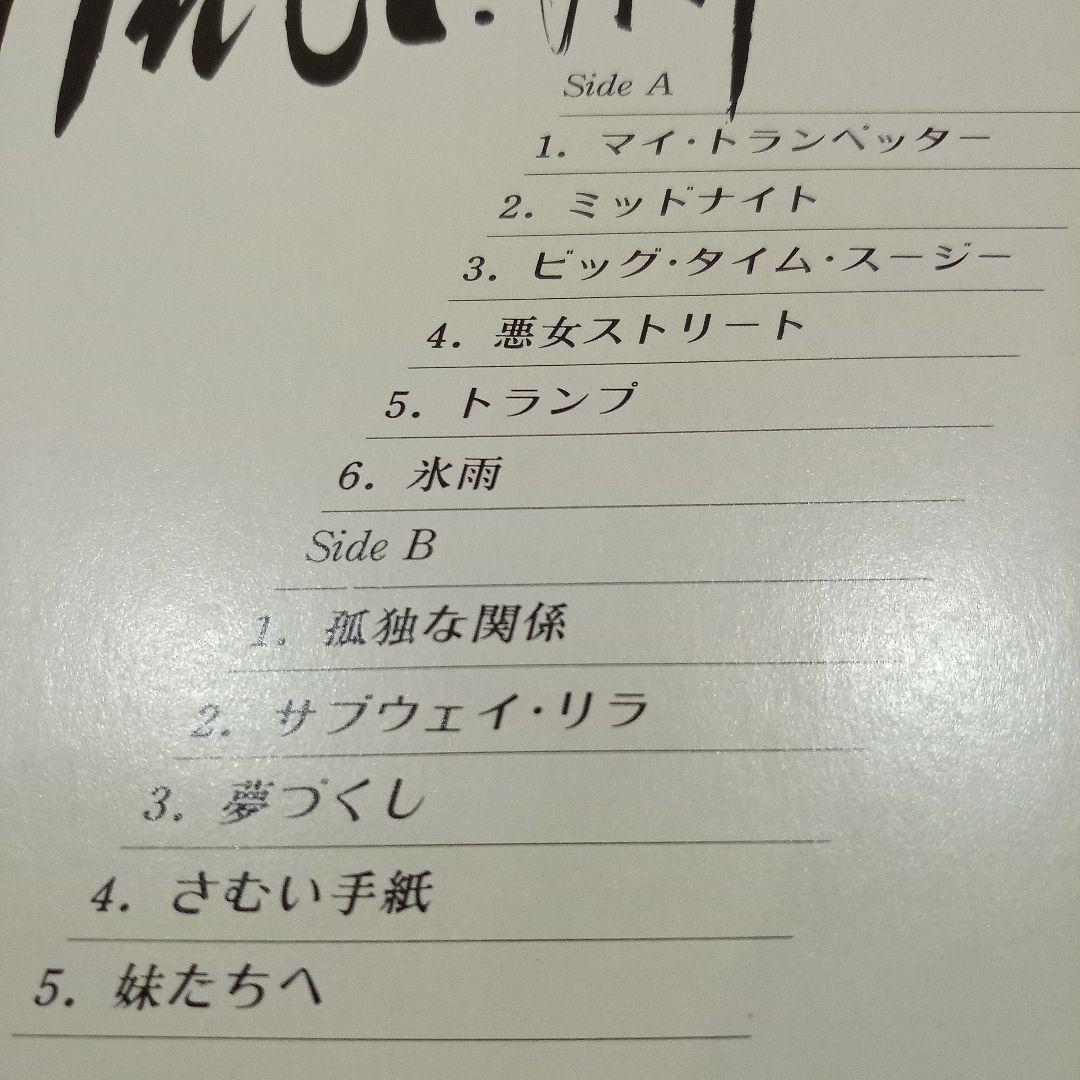 Side A
1. マイ・トランペッター
2. ミッドナイト
3. ビッグ・タイム・スージー
4. 悪女ストリート
5. トランプ
6. 氷雨
Side B
1. 孤独な関係
2. サブウェイ・リラ
3. 夢づくし
4. さむい手紙
5. 妹たちへ